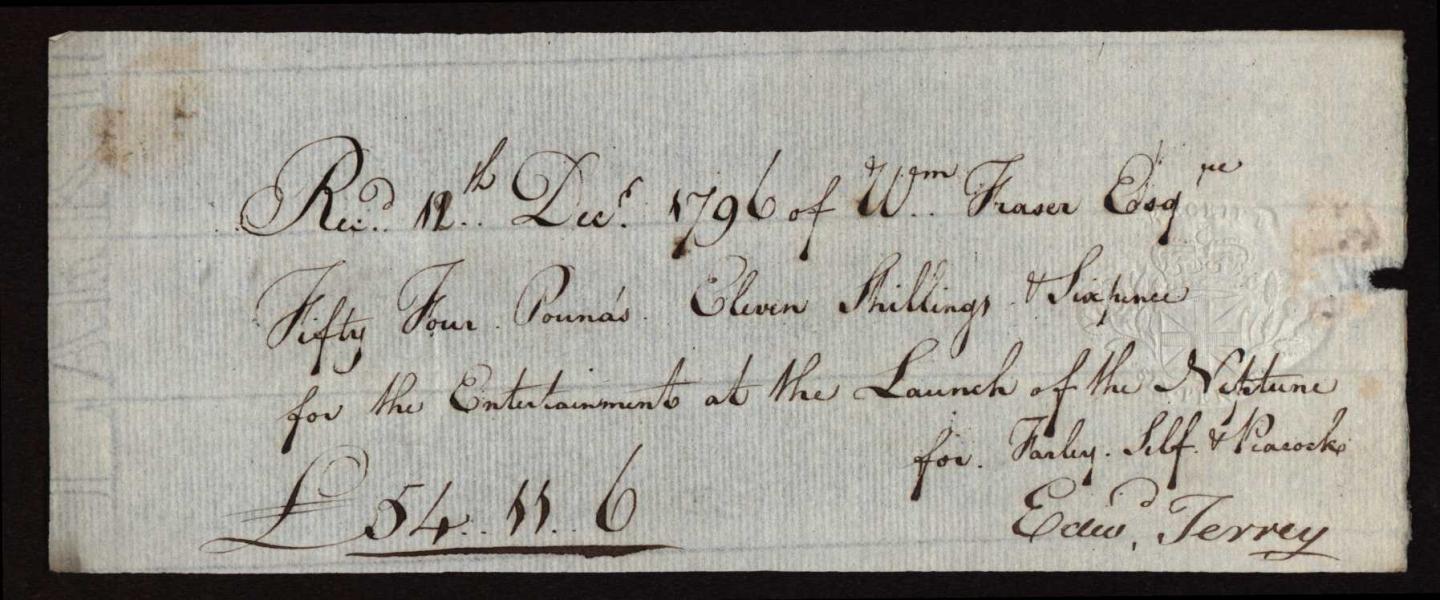 Rec.d 12th Decr. 1796 of Wm Fraser Esqre
Fifty Four Pounds Eleven Shillings & Sixpence
for the Entertainment at the Launch of the Neptune
for. Farley. Self. & Peacock
£ 54.. 11.. 6
Edwd. Terrey